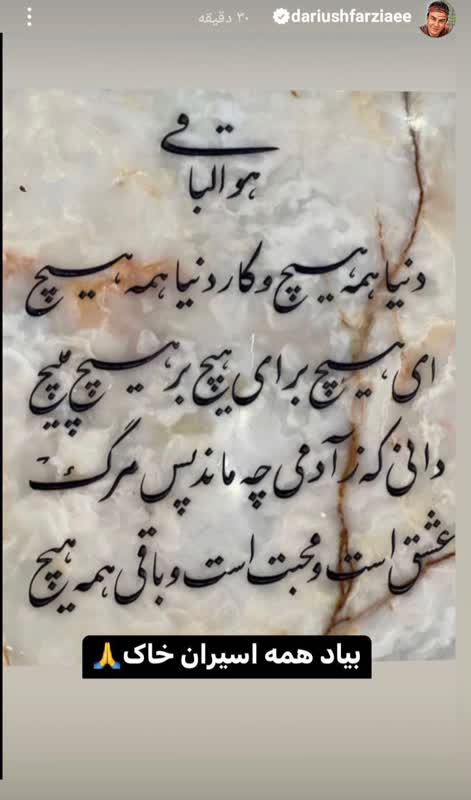 dariushfarziaee ۳۰ دقیقه
هوالباقی
دنیا همه هیچ و کار دنیا همه هیچ
ای هیچ برای هیچ بر هیچ مپیچ
دانی که ز آدمی چه ماند پس مرگ
عشق است و محبت است و باقی همه هیچ
بیاد همه اسیران خاک🙏